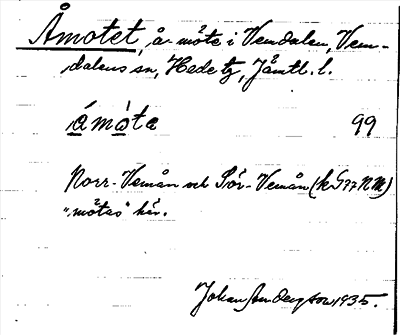 Åmotet, åmöte i Vemdalen, Vem-
dalens sn, Hede tg, Jämtl. l.
ǻmo̱ta 99
Norr-Vemån och Sör-Vemån (k 
"mötas" här.
Johan Anderson 1935.